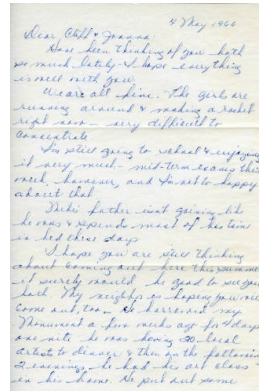 4 May 1966
Dear Cliff & Joanna
Have been thinking of you both
so much lately - I hope everything
is well with you.
We are all fine. The girls are
running around & making a racket
right now - very difficult to
concentrate
I'm still going to school & enjoying
it very much - mid-term exams this
week, however, and I'm not to happy
about that
father isn't going like
he was & spends most of his time
in bed these days
I hope you are still thinking
about coming out here this summer
it surely would be good to see you
both. My neighbor is hoping you will
come out, too. He borrowed my
Monument a few weeks ago for 4 days
one nite he was having 20 local
artists to dinner & then on the following
2 evenings he had his art class
in his home. He put out some